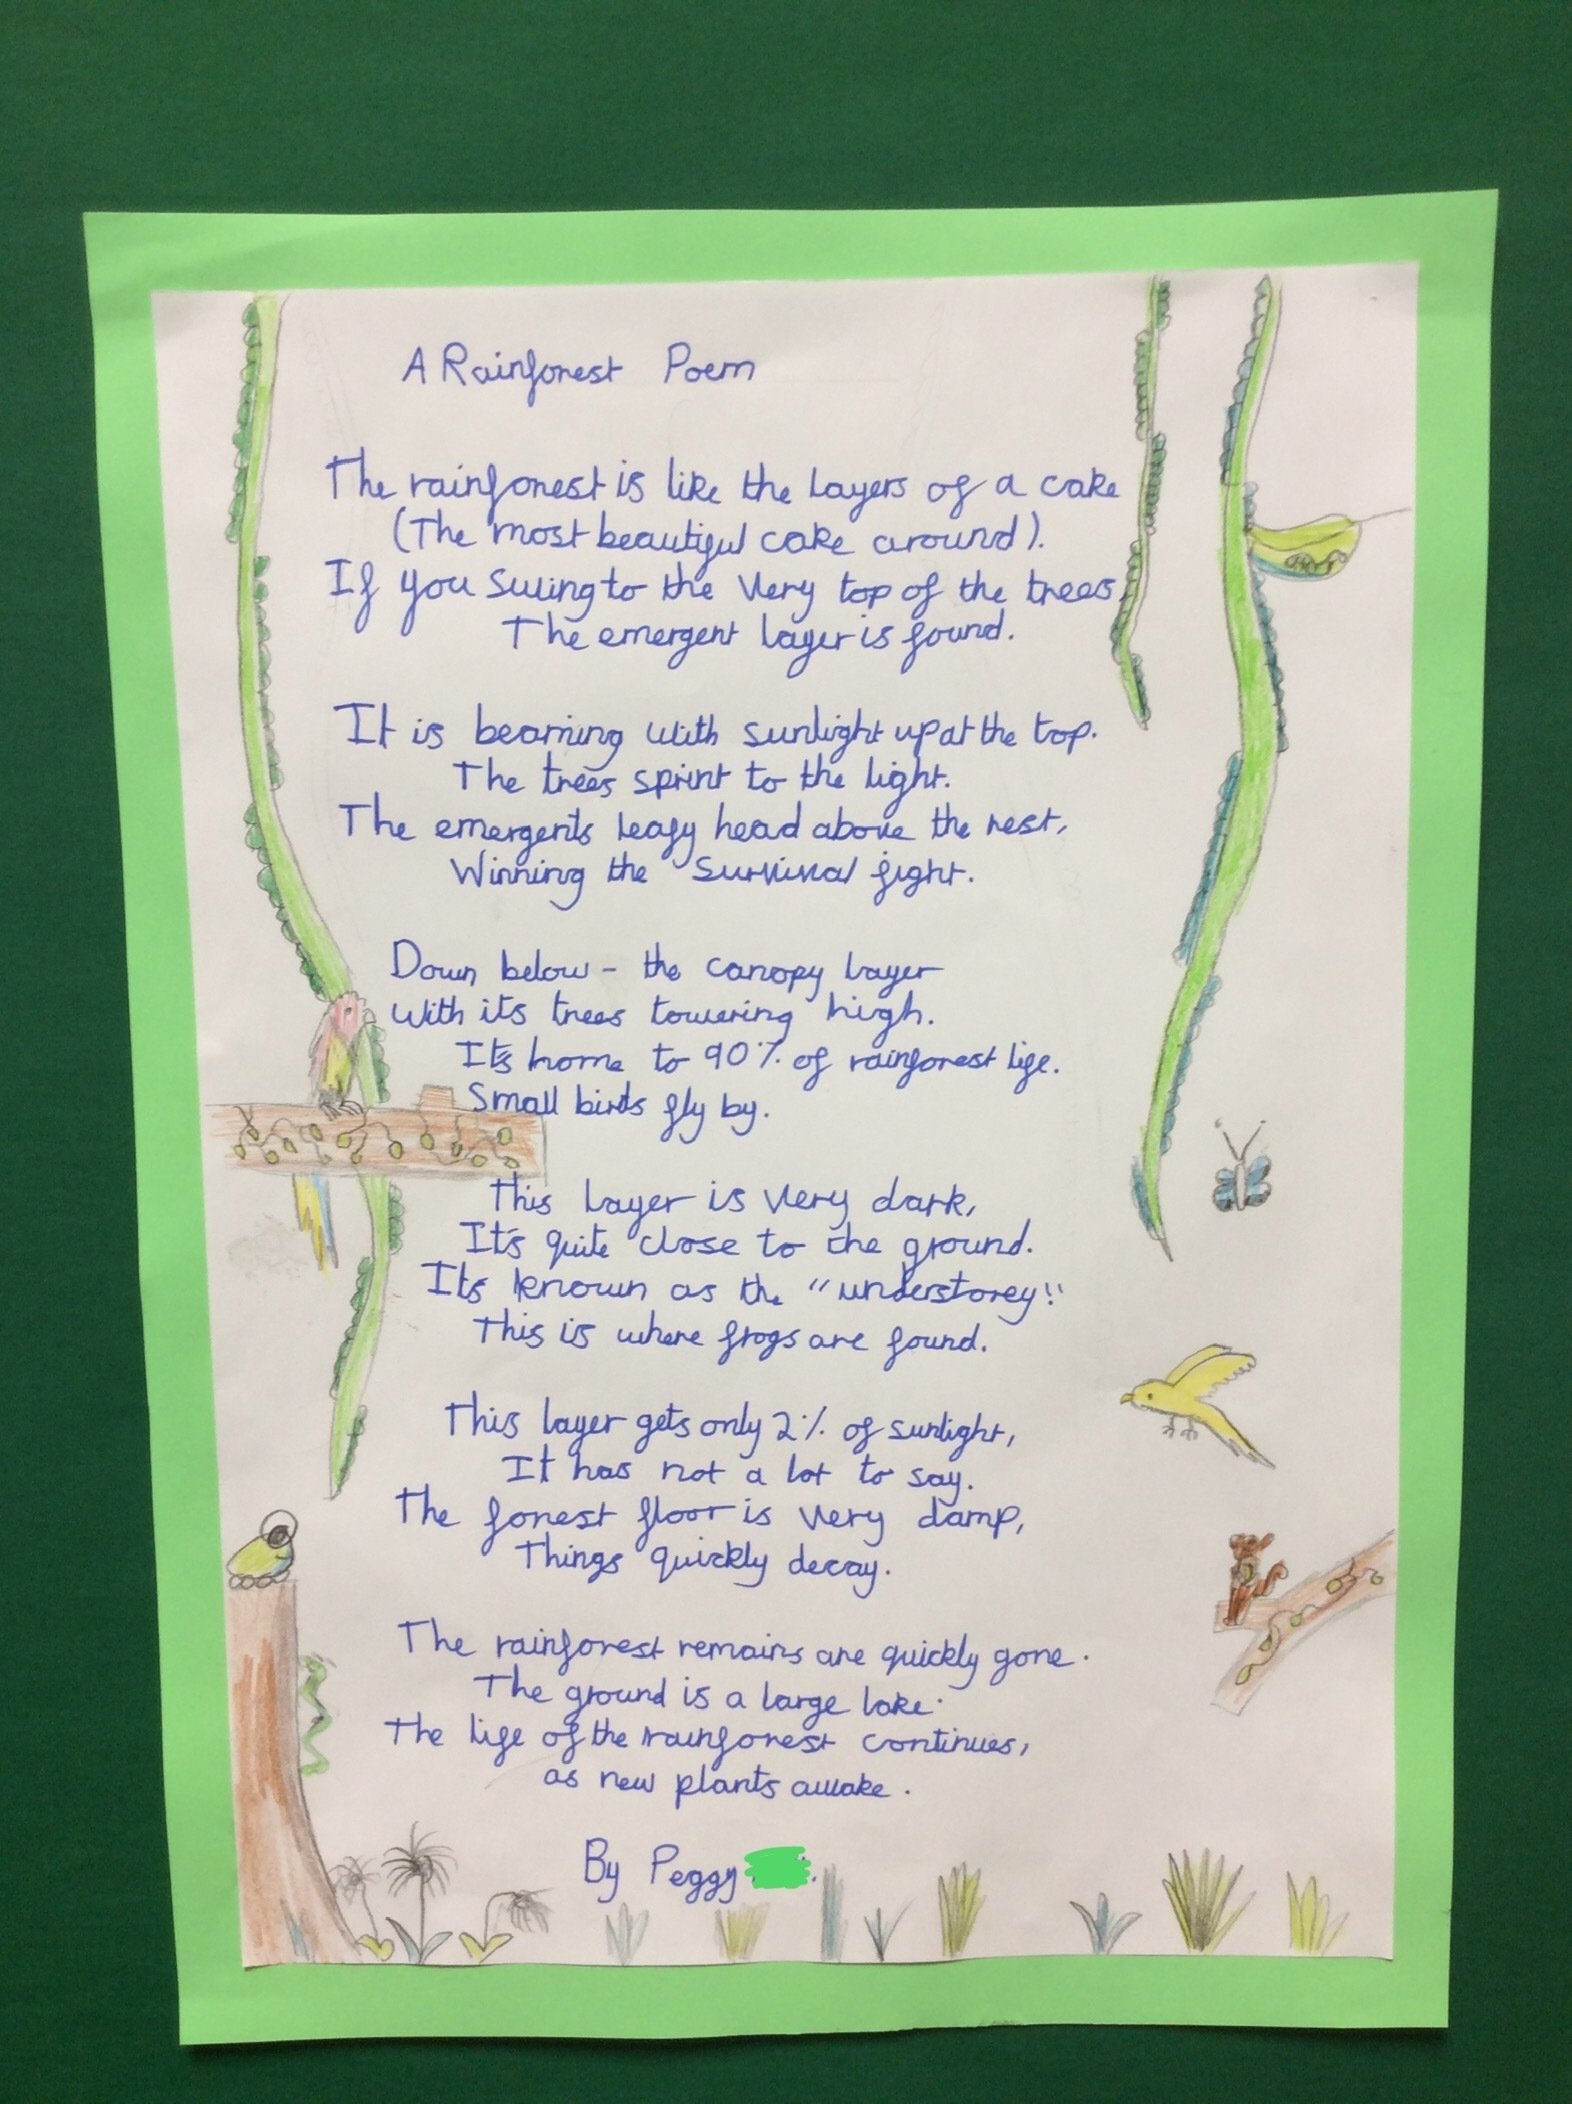 A Rainforest Poem
The rainforest is like the layers of a cake
(The most beautiful cake around).
If you swing to the very top of the trees,
The emergent layer is found.
It is beaming with sunlight up at the top.
The trees sprint to the light.
The emergent's leafy head above the rest,
Winning the survival fight.
Down below - the canopy layer
With its trees towering high.
It's home to 90% of rainforest life.
Small birds fly by.
This layer is very dark,
It's quite close to the ground.
It's known as the "understorey".
This is where frogs are found.
This layer gets only 2% of sunlight,
It has not a lot to say.
The forest floor is very damp,
Things quickly decay.
The rainforest remains are quickly gone.
The ground is a large lake.
The life of the rainforest continues,
as new plants awake.
By Peggy